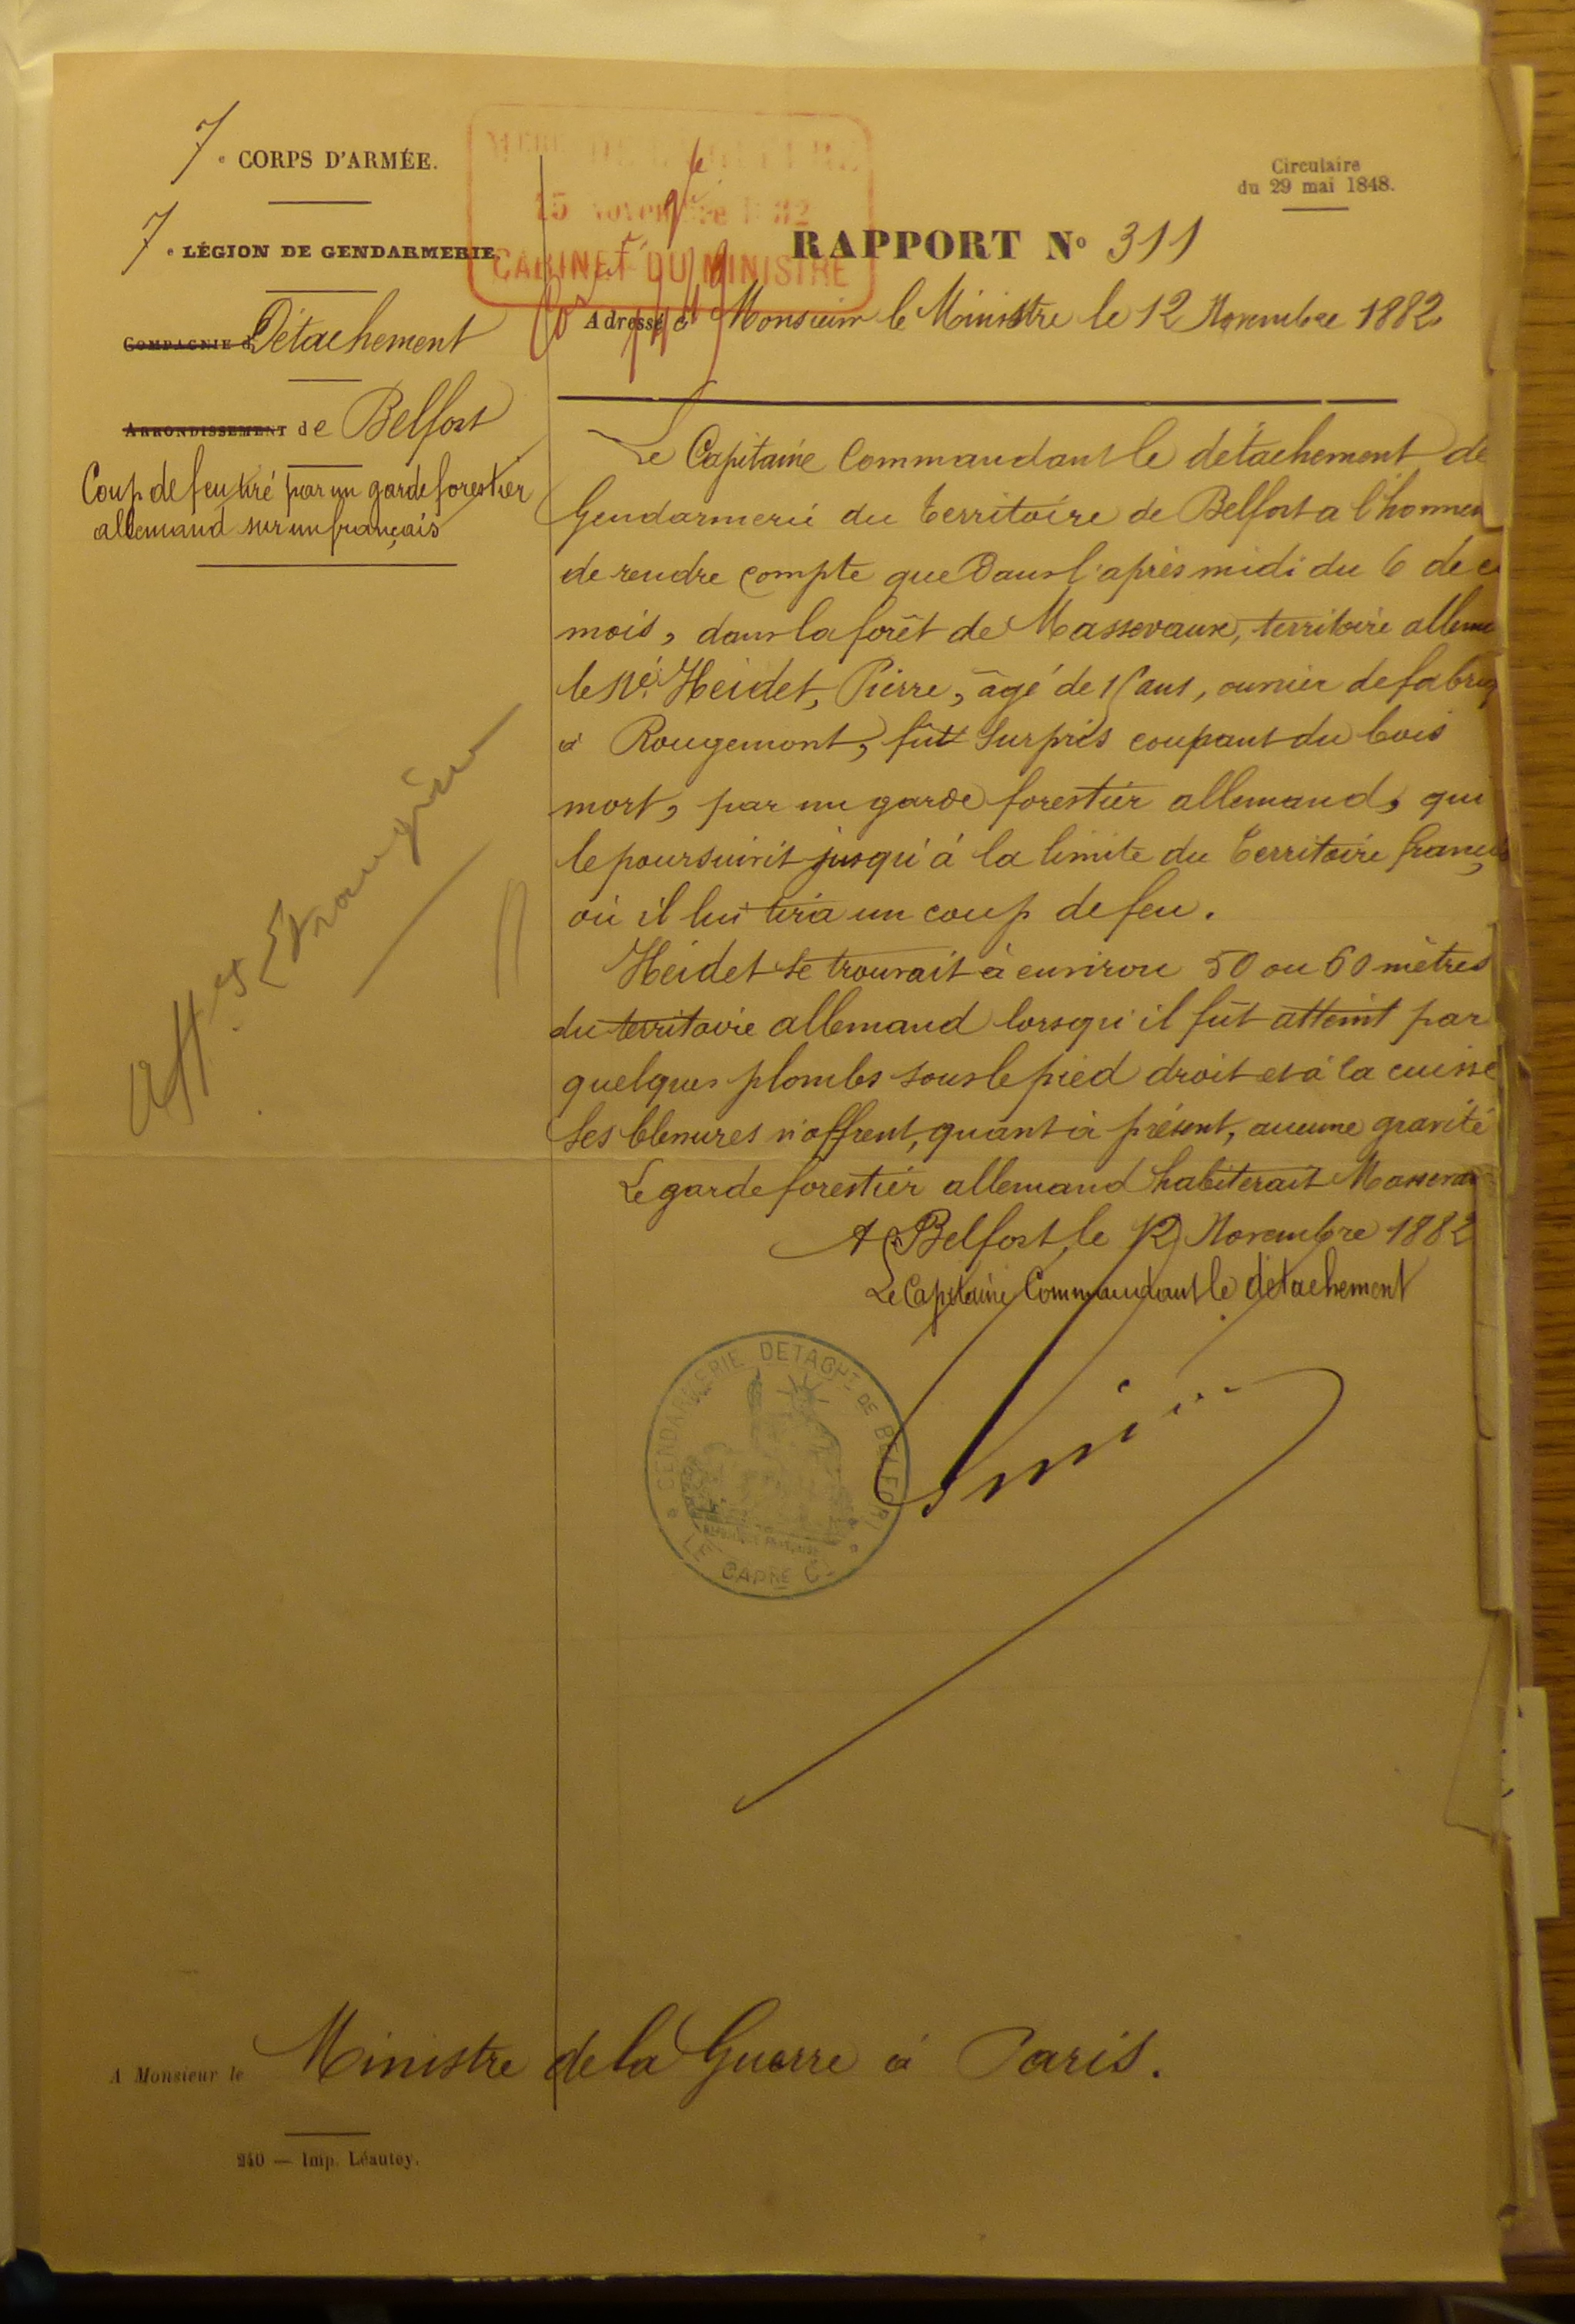 7e CORPS D'ARMÉE.
7e LÉGION DE GENDARMERIE.
COMPAGNIE d Détachement
ARRONDISSEMENT de Belfort
Coup de feu tiré par un garde forestier
allemand sur un français
Affes Etrangères
15 novembre 1882
CABINET DU MINISTRE
Circulaire
du 29 mai 1848.
RAPPORT No 311
Adressé à Monsieur le Ministre le 12 Novembre 1882.
Le Capitaine Commandant le détachement de
Gendarmerie du territoire de Belfort a l'honneu
de rendre compte que Dans l'après midi du 6 de c
mois, dans la forêt de Massevaux, territoire allema
le né Heidet, Pierre, âgé de 15 ans, ouvrier de fabriq
à Rougemont, fut surpris coupant du bois
mort, par un garde forestier allemand, qui
le poursuivit jusqu'à la limite du territoire françai
où il lui tira un coup de feu.
Heidet se trouvait à environ 50 ou 60 mètres
du territoire allemand lorsqu'il fût atteint par
quelques plombs sous le pied droit et à la cuisse
Ses blessures n'offrent, quant à présent, aucune gravité
Le garde forestier allemand habiterait Masseva
A Belfort, le 12 Novembre 1882
Le Capitaine Commandant le détachement
GENDARMERIE DETACHT DE BELFORT
LE CAPNE CT
A Monsieur le Ministre de la Guerre à Paris.
240 — Imp. Léautey.